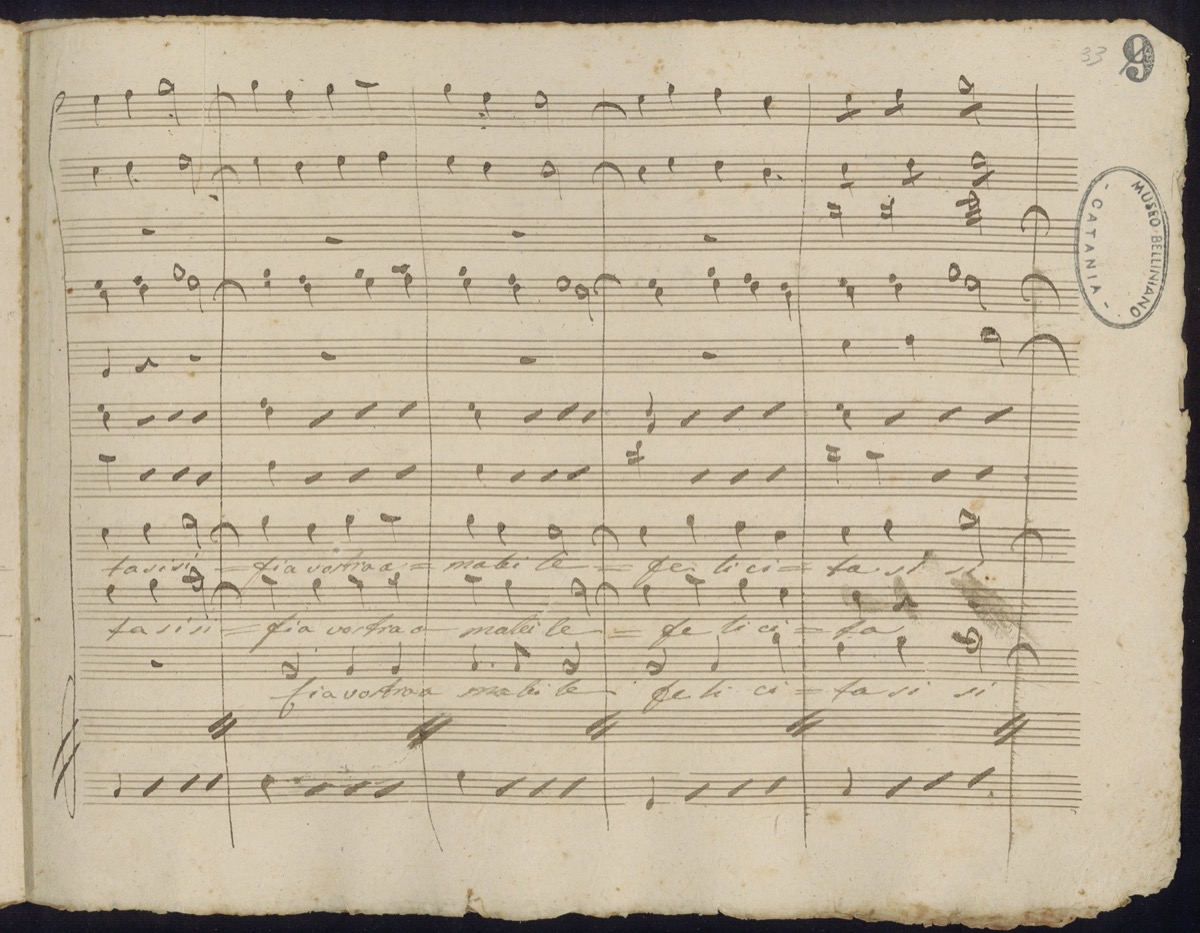 33 9
MUSEO BELLINIANO
- CATANIA -
ta si si = fia vostra a = mabi le = fe li ci = ta si si
ta si si = fia vostra a mabi le = fe li ci = ta
fia vostra a mabi le fe li ci = ta si si